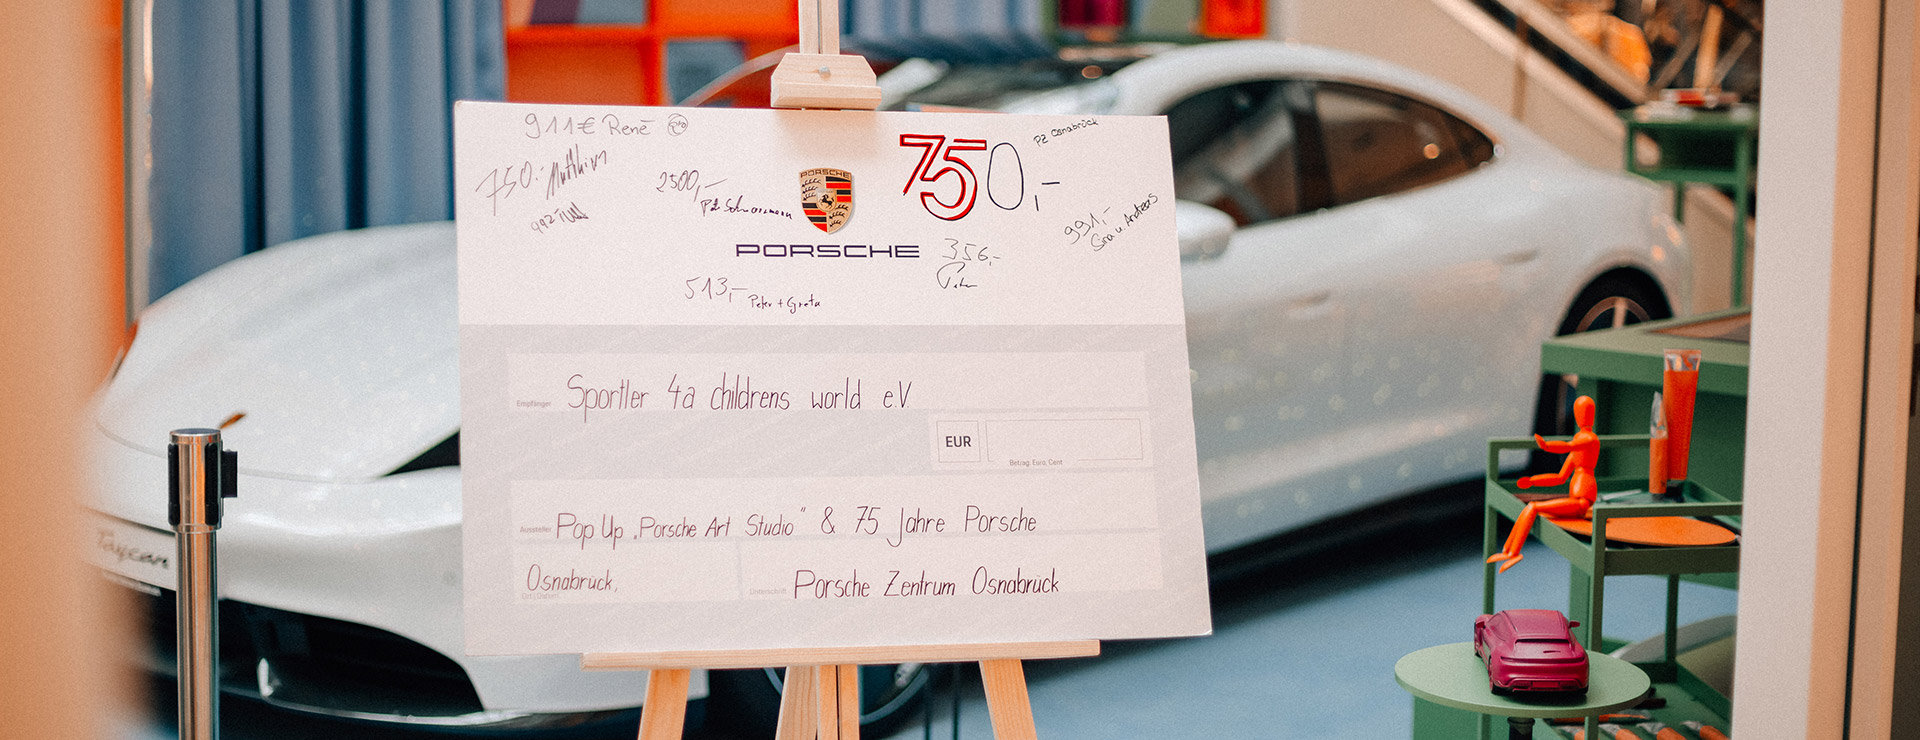 911€ René
750.- Matthias
2500,-
PORSCHE
PORSCHE
750,-
PZ Osnabrück
991,-
Sina u. Andreas
356,-
Peter
513,- Peter + Greta
Empfänger Sportler 4a childrens world e.V.
EUR
Betrag: Euro, Cent
Aussteller Pop Up „Porsche Art Studio" & 75 Jahre Porsche
Osnabrück,
Unterschrift Porsche Zentrum Osnabrück
Taycan